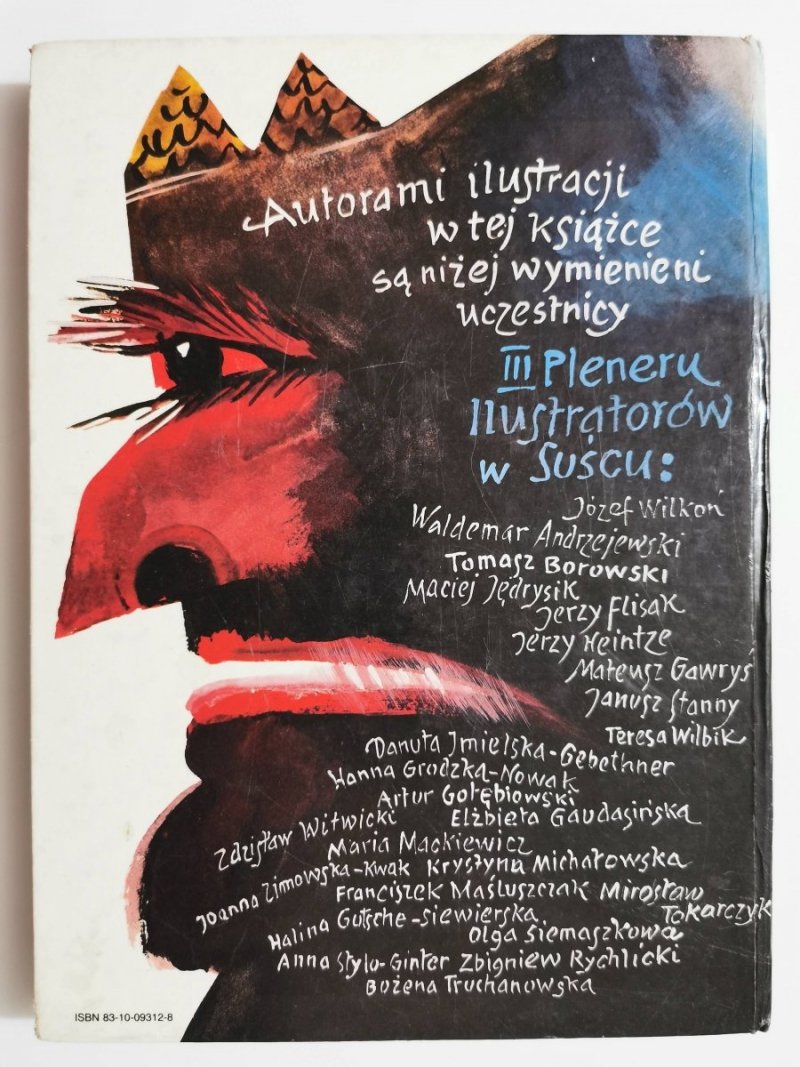 Autorami ilustracji
w tej książce
są niżej wymienieni
uczestnicy
III Pleneru
Ilustratorów
w Suścu:
Józef Wilkoń
Waldemar Andrzejewski
Tomasz Borowski
Maciej Jędrysik
Jerzy Flisak
Jerzy Heintze
Mateusz Gawryś
Janusz Stanny
Teresa Wilbik
Danuta Imielska-Gebethner
Hanna Grodzka-Nowak
Artur Gołębiowski
Zdzisław Witwicki Elżbieta Gaudasińska
Maria Mackiewicz
Joanna Zimowska-Kwak Krystyna Michałowska
Franciszek Maśluszczak Mirosław
Tokarczyk
Halina Gutsche-Siewierska
Olga Siemaszkowa
Anna Stylo-Ginter Zbigniew Rychlicki
Bożena Truchanowska
ISBN 83-10-09312-8